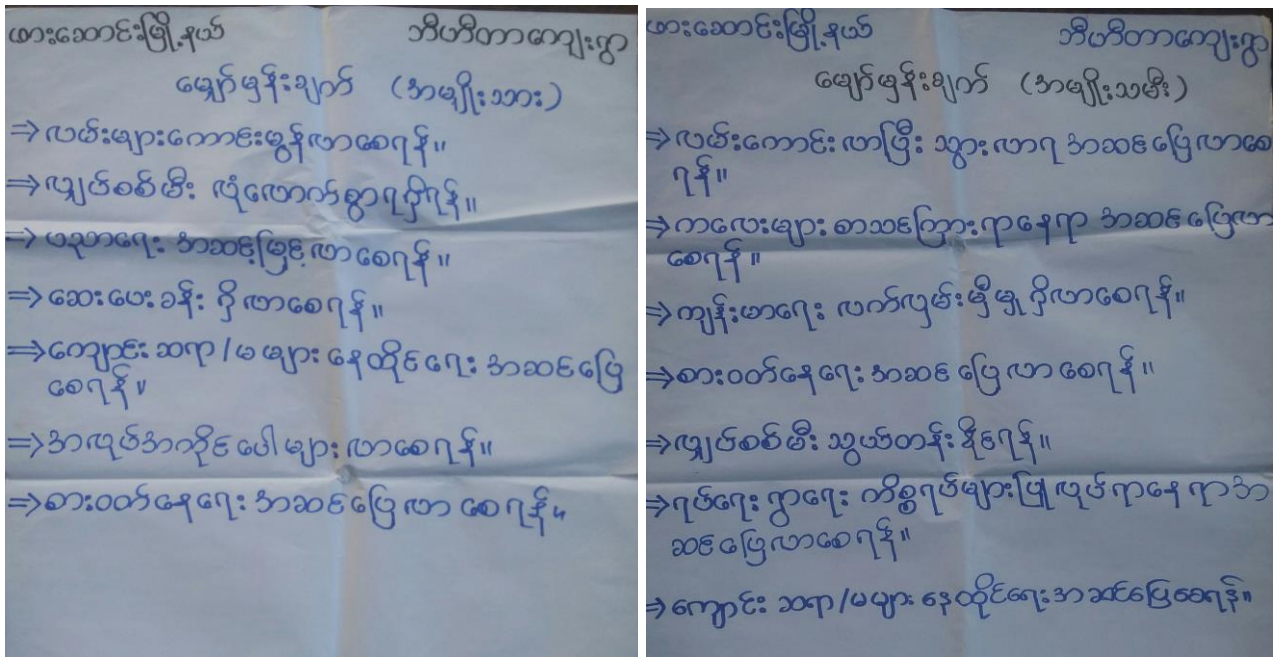 ဖားဆောင်းမြို့နယ် ဘီဟီတာကျေးရွာ
မျှော်မှန်းချက် (အမျိုးသား)
⇒လမ်းများကောင်းမွန်လာစေရန်။
⇒လျှပ်စစ်မီး လုံလောက်စွာရရှိရန်။
⇒ပညာရေး အဆင့်မြင့်လာစေရန်။
⇒ဆေးပေးခန်း ရှိလာစေရန်။
⇒ကျောင်းဆရာ/မများ နေထိုင်ရေး အဆင်ပြေ
စေရန်။
⇒အလုပ်အကိုင်ပေါများလာစေရန်။
⇒စားဝတ်နေရေး အဆင်ပြေလာစေရန်။
ဖားဆောင်းမြို့နယ် ဘီဟီတာကျေးရွာ
မျှော်မှန်းချက် (အမျိုးသမီး)
⇒လမ်းကောင်းလာပြီး သွားလာရ အဆင်ပြေလာစေ
ရန်။
⇒ကလေးများ စာသင်ကြားရာနေရာ အဆင်ပြေလာ
စေရန်။
⇒ကျန်းမာရေး လက်လှမ်းမှီမှု ရှိလာစေရန်။
⇒စားဝတ်နေရေး အဆင်ပြေလာစေရန်။
⇒လျှပ်စစ်မီး သွယ်တန်းနိုင်ရန်။
⇒ရပ်ရေးရွာရေး ကိစ္စရပ်များပြုလုပ်ရာနေရာအ
ဆင်ပြေလာစေရန်။
⇒ကျောင်း ဆရာ/မများ နေထိုင်ရေးအဆင်ပြေစေရန်။